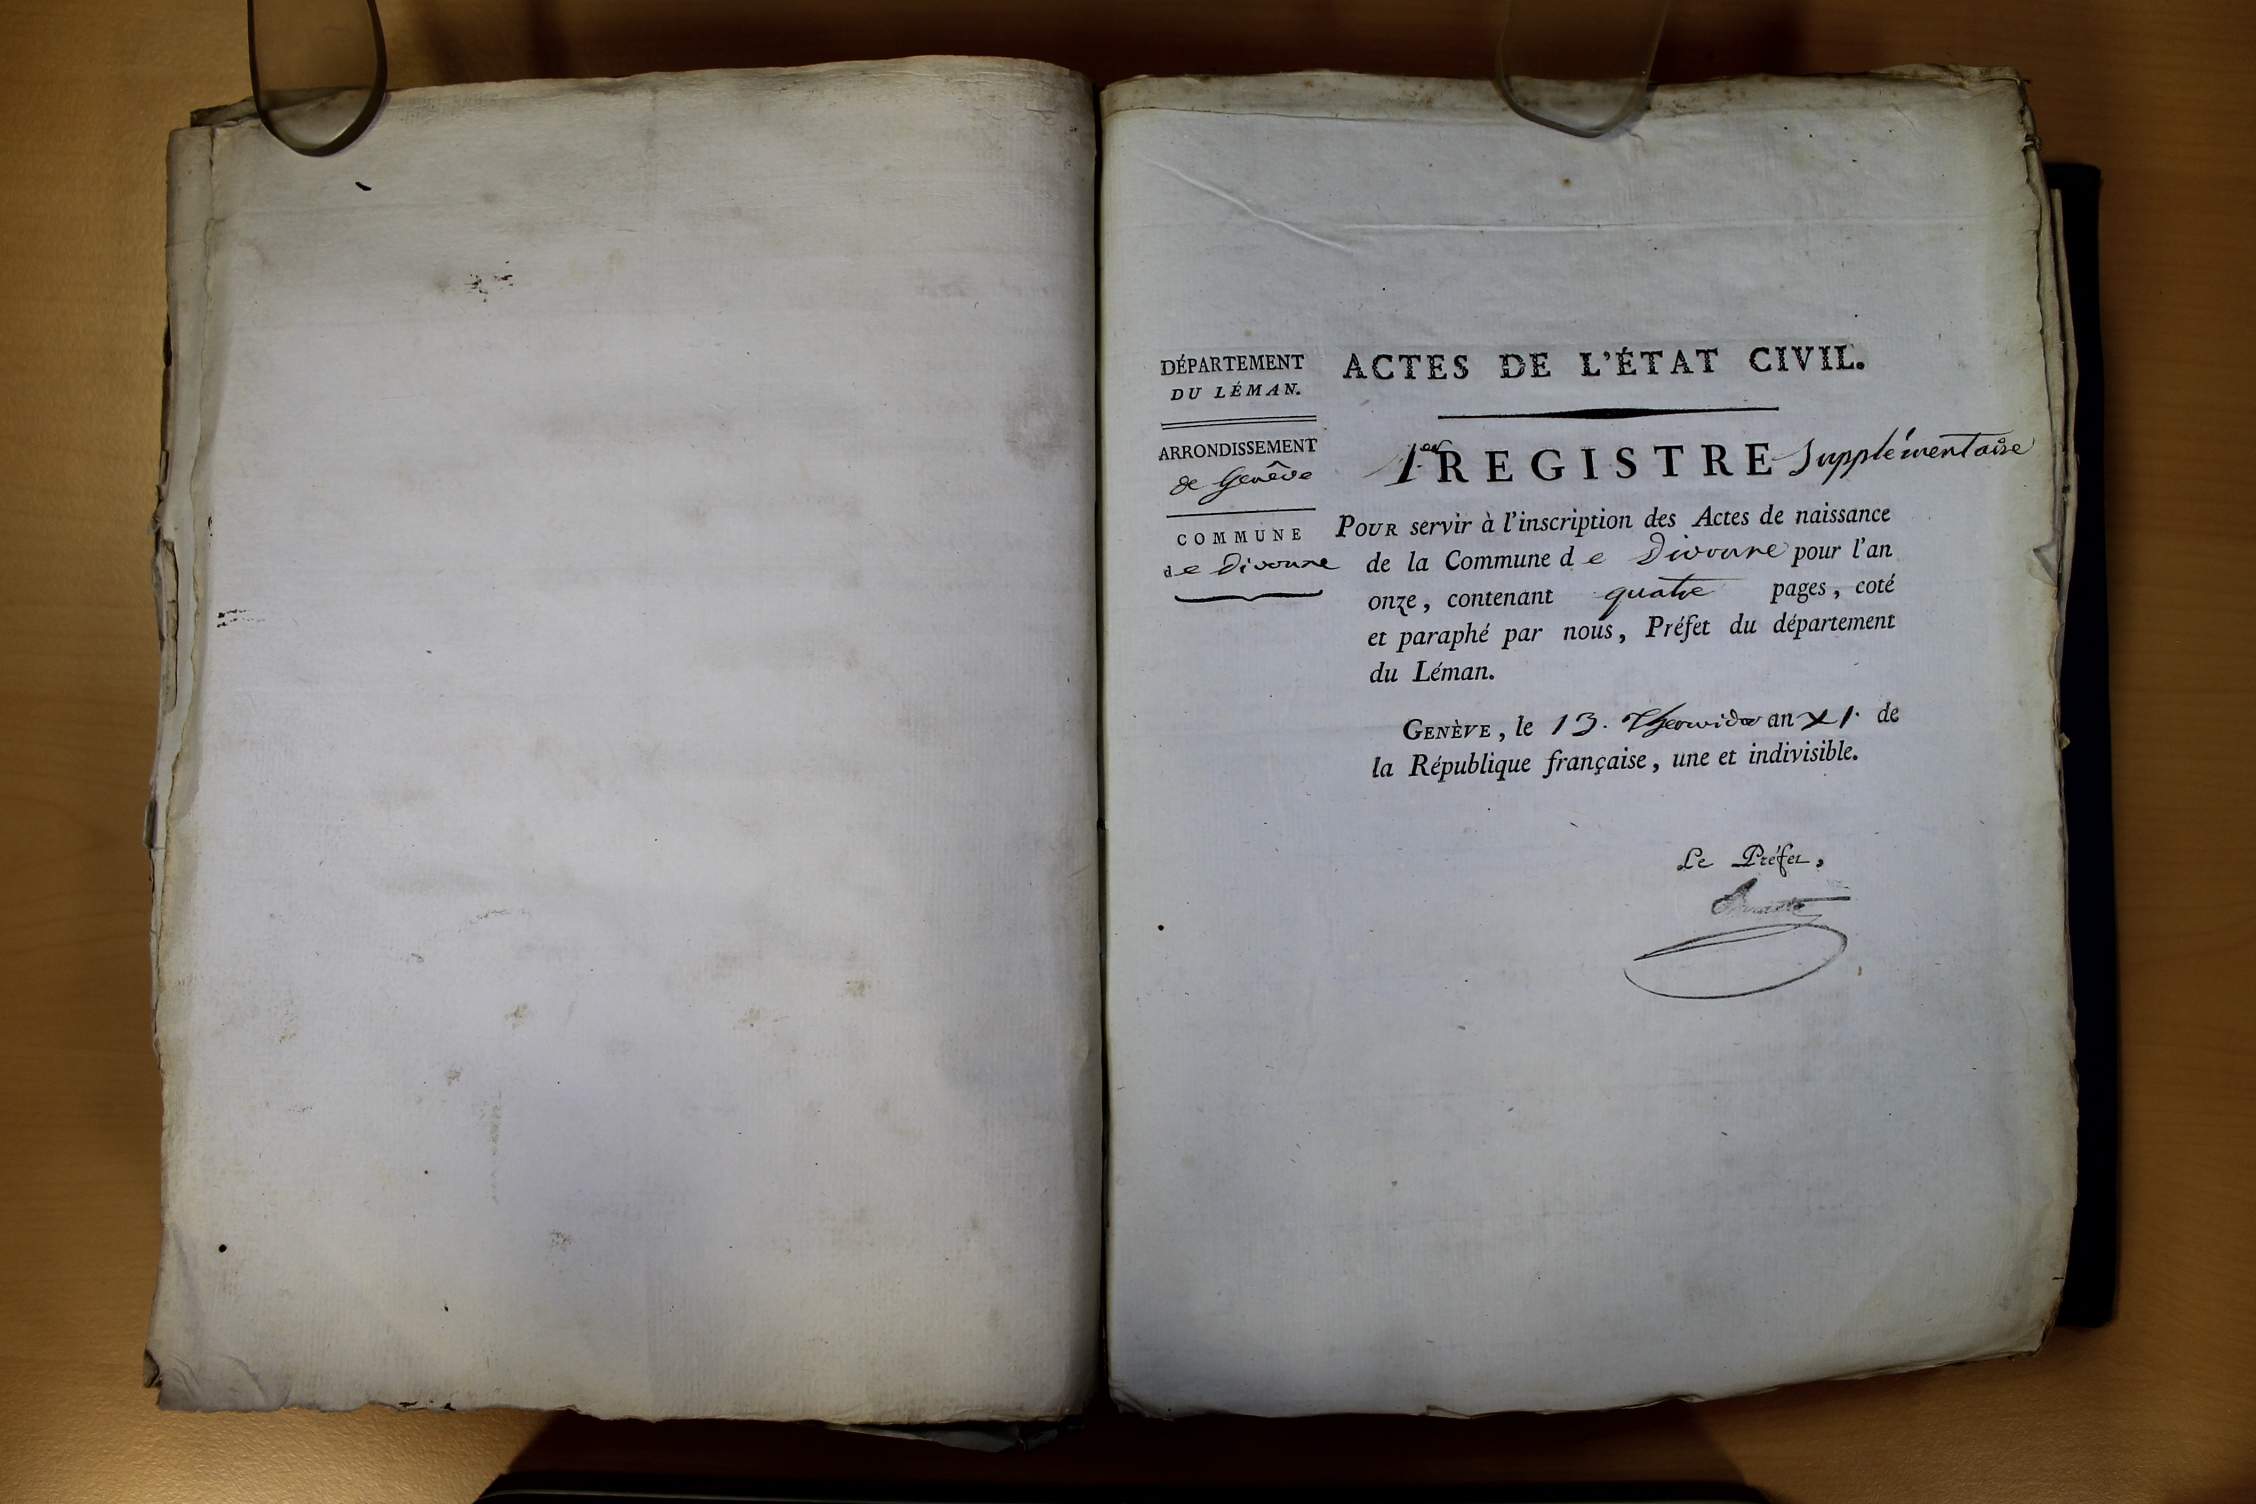 DÉPARTEMENT
DU LÉMAN.
ARRONDISSEMENT
de Genêve
COMMUNE
de Divonne
ACTES DE L'ÉTAT CIVIL.
1er REGISTRE Supplémentaire
POUR servir à l'inscription des Actes de naissance
de la Commune de Divonne pour l'an
onze, contenant quatre pages, coté
et paraphé par nous, Préfet du département
du Léman.
GENÈVE, le 13. Thermidor an XI. de
la République française, une et indivisible.
Le Préfet,